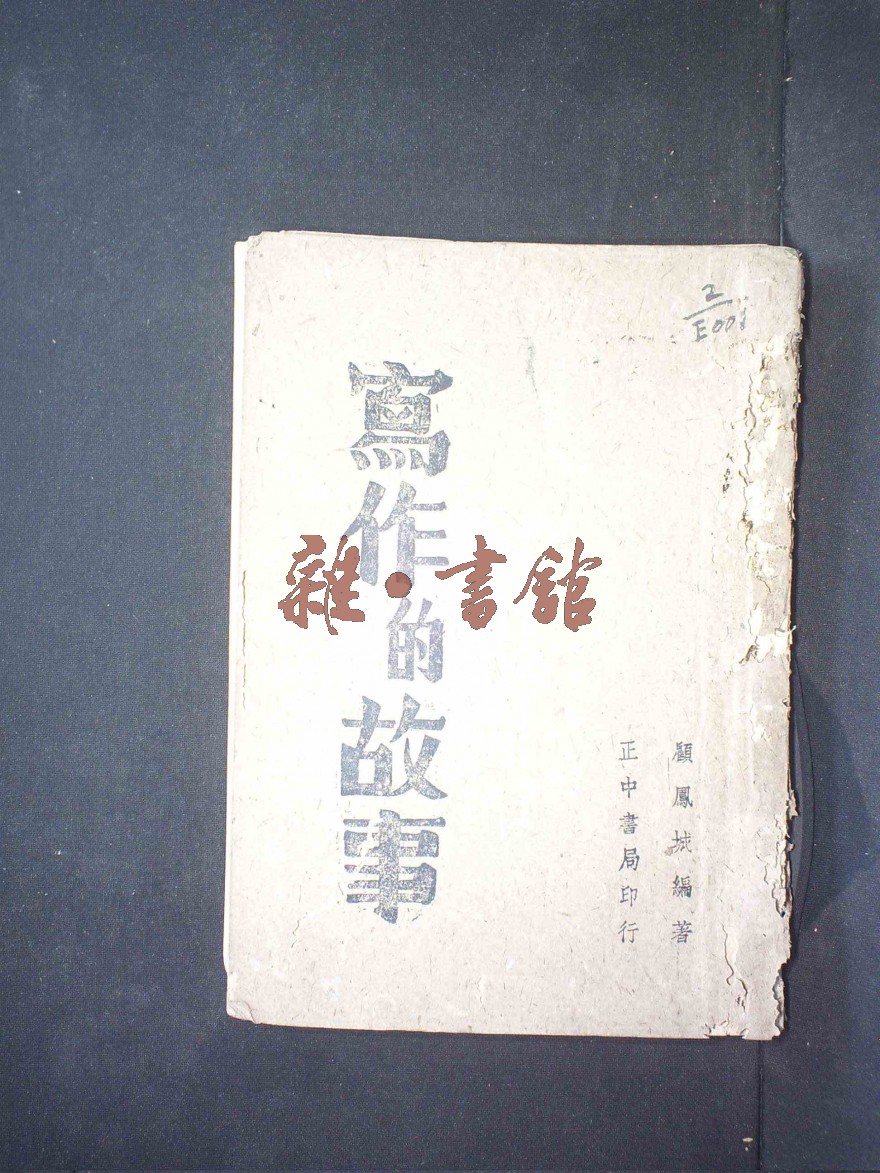 2
E001
寫作的故事
雜·書館
顧鳳城編著
正中書局印行